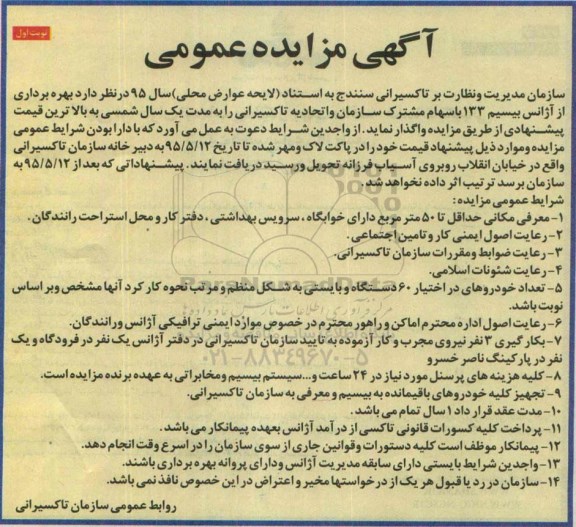 نوبت اول
آگهی مزایده عمومی
سازمان مدیریت ونظارت بر تاکسیرانی سنندج به استناد (لایحه عوارض محلی) سال ۹۵ درنظر دارد بهره برداری
از آژانس بیسیم ۱۳۳ باسهام مشترک سازمان واتحادیه تاکسیرانی را به مدت یک سال شمسی به بالا ترین قیمت
پیشنهادی از طریق مزایده واگذار نماید. از واجدین شرایط دعوت به عمل می آورد که با دارا بودن شرایط عمومی
مزایده وموارد ذیل پیشنهاد قیمت خود را در پاکت لاک ومهر شده تا تاریخ ۹۵/۵/۱۲ به دبیر خانه سازمان تاکسیرانی
واقع در خیابان انقلاب روبروی آسیاب فرزانه تحویل ورسید دریافت نمایند. پیشنهاداتی که بعد از ۹۵/۵/۱۲ به
سازمان برسد ترتیب اثر داده نخواهد شد.
شرایط عمومی مزایده:
۱- معرفی مکانی حداقل تا ۵۰ متر مربع دارای خوابگاه ، سرویس بهداشتی ، دفتر کار و محل استراحت رانندگان.
۲- رعایت اصول ایمنی کار و تامین اجتماعی.
۳- رعایت ضوابط ومقررات سازمان تاکسیرانی.
۴- رعایت شئونات اسلامی.
۵- تعداد خودروهای در اختیار ۶۰ دستگاه و بایستی به شکل منظم ومرتب نحوه کار کرد آنها مشخص وبر اساس
نوبت باشد.
۶- رعایت اصول اداره محترم اماکن و راهور محترم در خصوص موارد ایمنی ترافیکی آژانس ورانندگان.
۷- بکار گیری ۳ نفر نیروی مجرب و کار آزموده به تایید سازمان تاکسیرانی در دفتر آژانس یک نفر در فرودگاه و یک
نفر در پارکینگ ناصر خسرو
۸- کلیه هزینه های پرسنل مورد نیاز در ۲۴ ساعت و...سیستم بیسیم ومخابراتی به عهده برنده مزایده است.
۹- تجهیز کلیه خودروهای باقیمانده به بیسیم و معرفی به سازمان تاکسیرانی.
۱۰- مدت عقد قرار داد ۱ سال تمام می باشد.
۱۱- پرداخت کلیه کسورات قانونی تاکسی از درآمد آژانس بعهده پیمانکار می باشد.
۱۲- پیمانکار موظف است کلیه دستورات وقوانین جاری از سوی سازمان را در اسرع وقت انجام دهد.
۱۳- واجدین شرایط بایستی دارای سابقه مدیریت آژانس ودارای پروانه بهره برداری باشند.
۱۴- سازمان در رد یا قبول هر یک از درخواستها مخیر و اعتراض در این خصوص نافذ نمی باشد.
روابط عمومی سازمان تاکسیرانی
۰۲۱-۸۸۳۴۹۶۷۰-۵